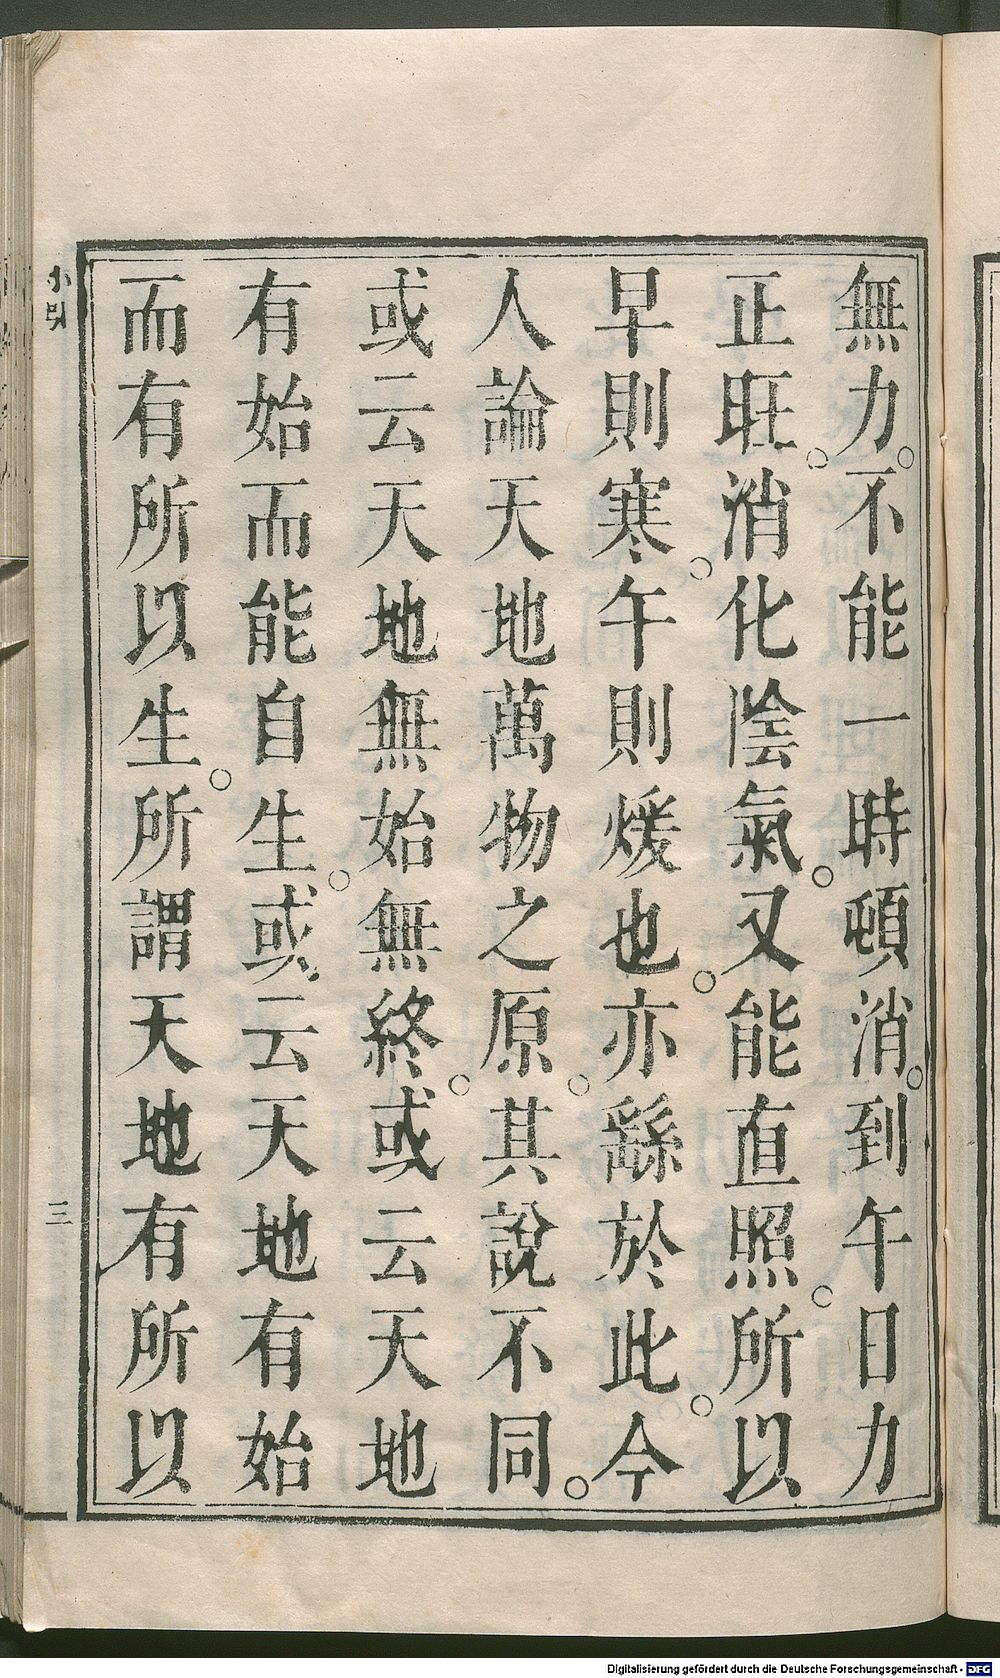 無力。不能一時頓消。到午日力
正旺。消化陰氣。又能直照。所以
早則寒。午則煖也。亦繇於此。今
人論天地萬物之原。其說不同。
或云天地無始無終。或云天地
有始而能自生。或云天地有始
而有所以生。所謂天地有所以
小引
三
Digitalisierung gefördert durch die Deutsche Forschungsgemeinschaft - DFG